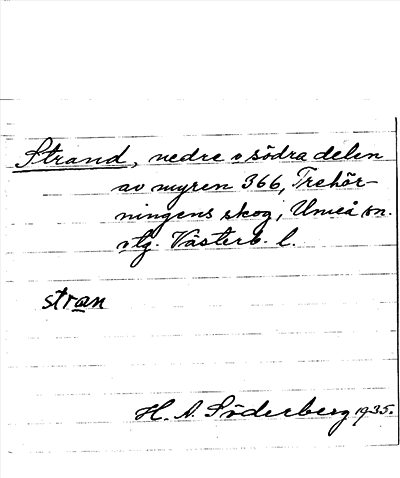 Strand, nedre o södra delen
av myren 366, Trehör-
ningens skog, Umeå sn.
vtg. Västerb. l.
stran
H. A. Söderberg 1935.